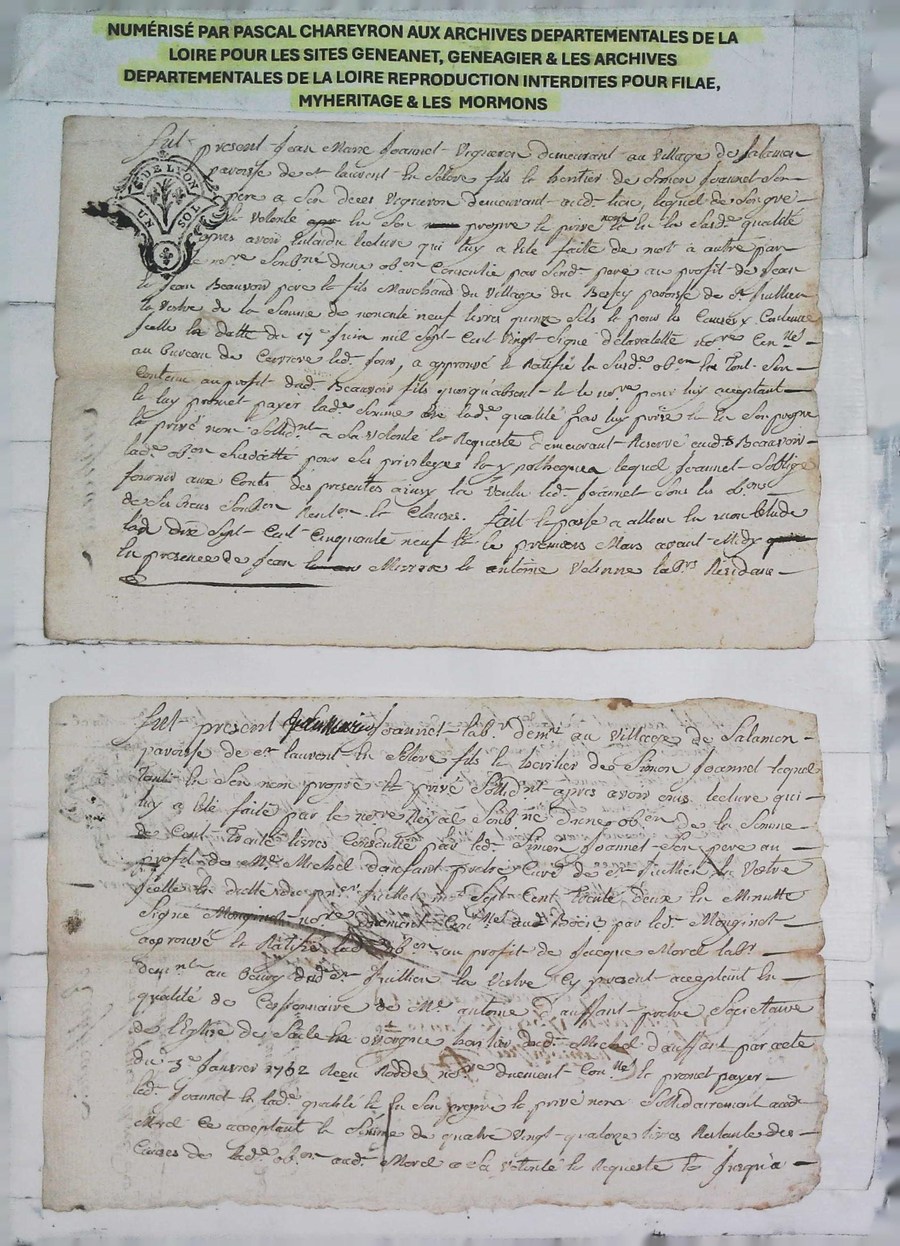 NUMÉRISÉ PAR PASCAL CHAREYRON AUX ARCHIVES DEPARTEMENTALES DE LA
LOIRE POUR LES SITES GENEANET, GENEAGIER & LES ARCHIVES
DEPARTEMENTALES DE LA LOIRE REPRODUCTION INTERDITES POUR FILAE,
MYHERITAGE & LES MORMONS
fut present Jean Marie Joannet Vigneron demeurant au village de Salamon
paroisse de st laurent En Solore fils et heritier de Simon Joannet Son
pere a Son deces Vigneron demeurant aud. lieu, lequel de Son gré
et volonte En Son propre et privé nom et En la Susd.e qualité
apres avoir Entendu lecture qui luy a Esté faite de mot a autre par
le no.re Soub.né d'une ob.on Consentie par Sond. pere au profit de Jean
et Jean Beauvoir pere et fils Marchand du Village du paroisse de St Jullien
la Vestre de la Somme de nonante neuf livres quinze Sols et pour les Causes y Contenues
Icelle En datte du 17e Juin mil Sept Cent Vingt Signé delavalette no.re
au bureau de Cerviere led. jour, a approuvé et Ratifié la Susd.e ob.on En tout Son
Contenu au profit dud. Beauvoir fils quoiqu'absent et le no.re pour luy acceptant
et luy promet payer lad.e Somme lad.e qualité et En Son propre
et privé nom Sollid.nt a Sa Volonté et Requeste demeurant Reservé aud. Beauvoir
lad.e ob.on Susdatté pour Ses privileges et ypotheques lequel Joannet S'oblige
fournir aux Couts des presentes ainsy l'a Voulu led. Joannet Sous les ob.ons
de Ses biens et Clauses. fait et passé a allieu En mon Etude
Sept Cent Cinquante neuf et le premiers Mars avant Midy
En presence de Jean et antoine lab.rs Residans
DE LYON
UN SOL
fut present Joannet lab.r dem.t au Village de Salamon
paroisse de st laurent En Solore fils et heritier de Simon Joannet lequel
tant En Son nom propre et privé Sollid.nt apres avoir ouis lecture qui
luy a Esté faite par le no.re Royal Soub.né d'une ob.on de la Somme
de Cent Trante livres Consentie par led. Simon Joannet Son pere au
profit de M.re Michel dauffant pretre Curé de st Jullien la Vestre
Icelle En datte du Juillet Sept Cent trente deux En Minutte
Signé Monginot no.re au Bois par led. Monginot
approuvé et Ratifié lad. ob.on au profit de Jacque Morel lab.r
dem.nt au Bourg dud. st Jullien la Vestre Cy present acceptant En
qualité de Cessionnaire de M.re antoine d'auffant pretre Societaire
de l'Eglise de En auvergne heritier dud. Michel d'auffant par acte
du 3e Janvier 1762 Receu no.re et promet payer
led. Joannet et lad.e qualité et En Son propre et privé nom Sollidairement aud.
Morel Ce acceptant la Somme de quatre Vingt quatorze livres Restante des
Causes de lad. ob.on aud. Morel a Sa Volonté et Requeste et Jusqu'a